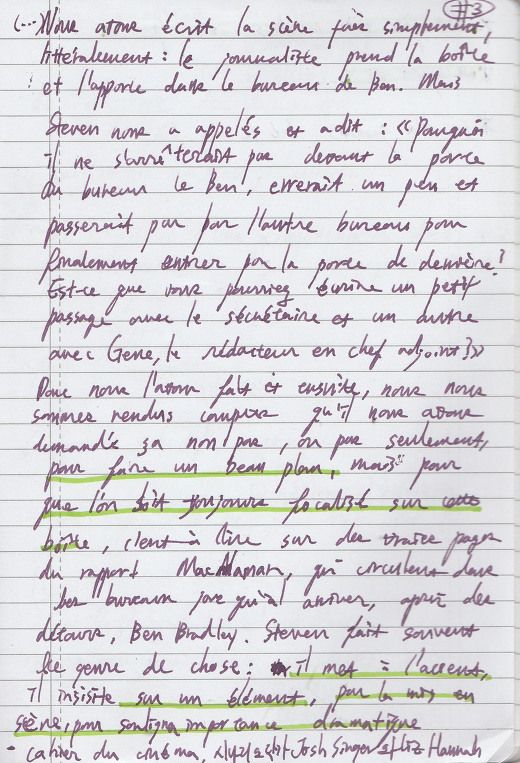 #3
(... Nous avons écrit la scène très simplement,
littéralement : le journaliste prend la boîte
et l'apporte dans le bureau de Ben. Mais
Steven nous a appelés et a dit : « Pourquoi
il ne s'arrêterait pas devant la porte
du bureau de Ben, errerait un peu et
passerait par par l'autre bureau pour
finalement entrer par la porte de derrière ?
Est-ce que vous pourriez écrire un petit
passage avec le sécrétaire et un autre
avec Gene, le rédacteur en chef adjoint ? »
Donc nous l'avons fait et ensuite, nous nous
sommes rendus compte qu'il nous avons
demandé ça non pas, ou pas seulement,
pour faire un beau plan, mais pour
que l'on soit toujours focalisé sur cette
boîte, c'est-à-dire sur des vraies pages
du rapport MacNamar, qui circulent dans
les bureaux jusqu'à arriver, après des
détours, Ben Bradley. Steven fait souvent
ce genre de chose : il met l'accent,
il insisite sur un élément, par la mis en
scène, pour souligna importance dramatique
- cahier du cinéma, 시나리오작가 Josh Singer 와 리즈 Hannah